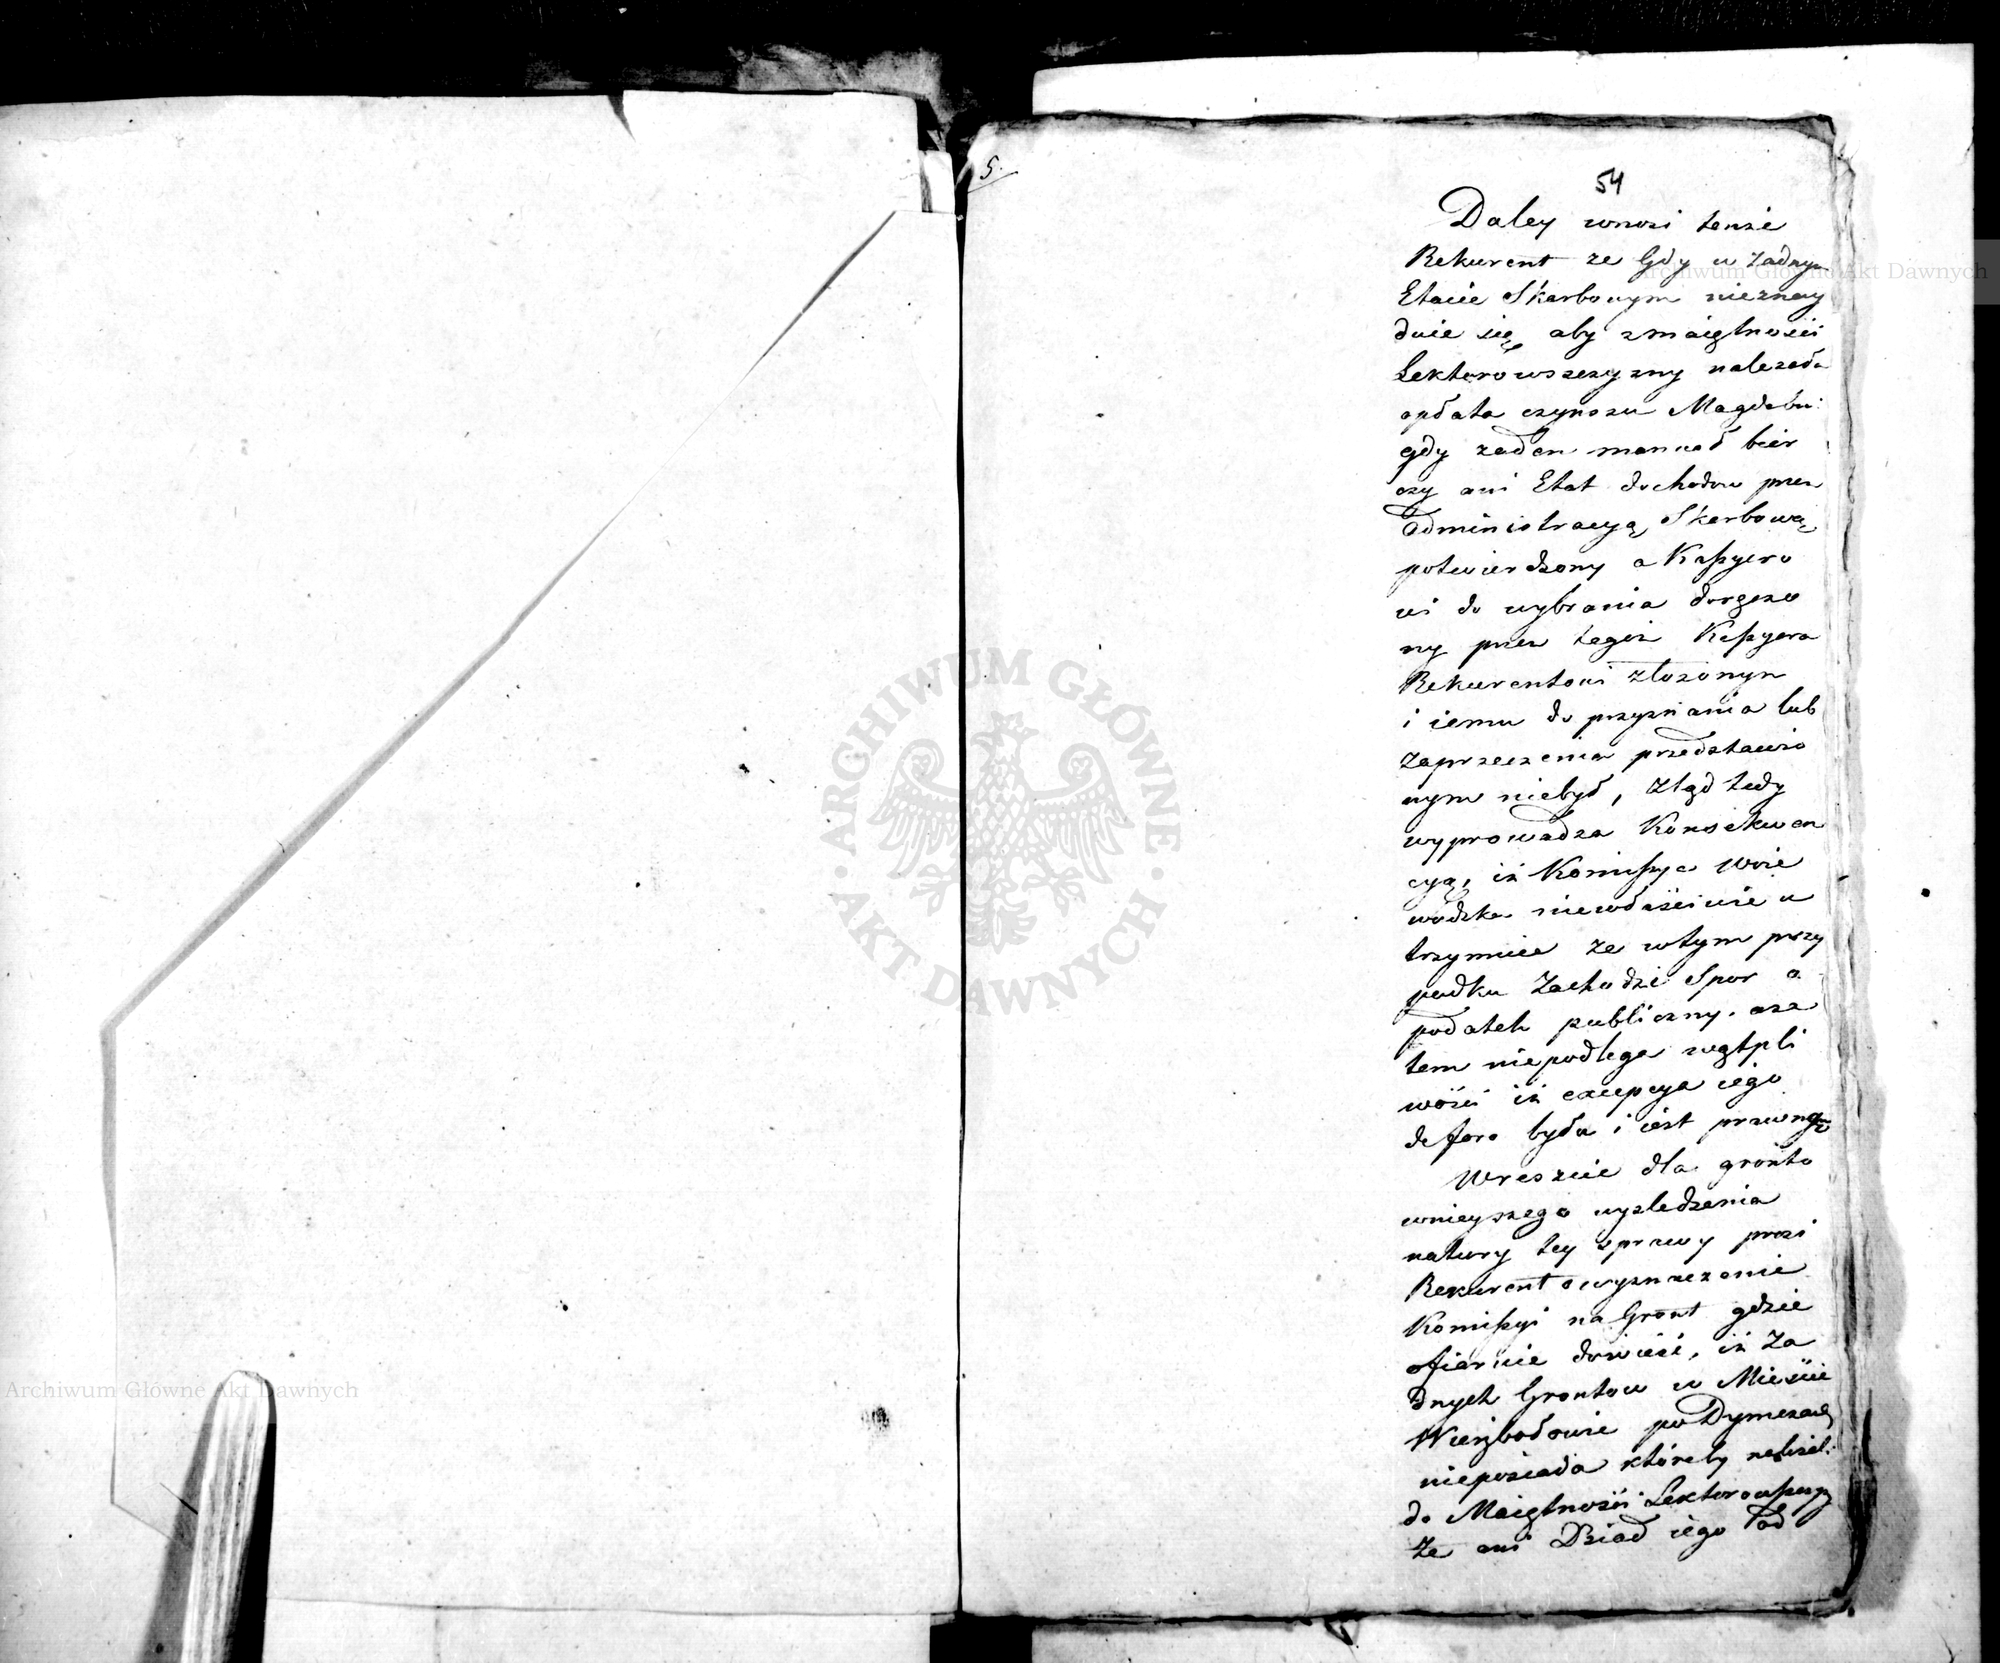 5.
54
Daley wnosi tenże
Rekurent ze Gdy w zadnym
Etacie Skarbowym nieznay
duie się, aby z maiętnosci
Lektorowszczyzny nalezała
opłata czynszu
gdy zaden manuał bier
czy ani Etat dochodow przez
administracyą Skarbową
potwierdzony a Kassyero
wi do wybrania doręczo
ny przez tegoż Kassyera
Rekurentowi złozonym
i iemu do przyznania lub
zaprzeczenia przedstawio
nym niebył, ztąd tedy
wyprowadza Konsekwen
cyą, iż Komissya Woie
wodzka niewłaściwie u
trzymuie ze wtym przy
padku zachodzi Spor o
podatek publiczny. a za
tem niepodlega wątpli
wości iż excepcya iego
de foro była i iest prawną
Wreszcie dla grónto
wnieyszego wysledzenia
natury tey sprawy prosi
Rekurent o wyznaczenie
Komissyi na Gront gdzie
ofiaruie dowieść, iż Za
dnych Grontow w Mieście
Wierzbołowie po
nieposiada któreby
do Maiętności
Ze ani Dziad iego od
ARCHIWUM GŁÓWNE · AKT DAWNYCH ·
Archiwum Główne Akt Dawnych
Archiwum Główne Akt Dawnych